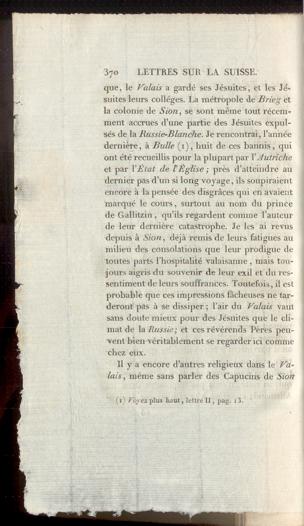 370 LETTRES SUR LA SUISSE.
que, le Valais a gardé ses Jésuites, et les Jé-
suites leurs colléges. La métropole de Brieg et
la colonie de Sion, se sont même tout récem-
ment accrues d'une partie des Jésuites expul-
sés de la Russie-Blanche. Je rencontrai, l'année
dernière, à Bulle (1), huit de ces bannis, qui
ont été recueillis pour la plupart par l'Autriche
et par l'État de l'Église; près d'atteindre au
dernier pas d'un si long voyage, ils soupiraient
encore à la pensée des disgrâces qui en avaient
marqué le cours, surtout au nom du prince
de Gallitzin, qu'ils regardent comme l'auteur
de leur dernière catastrophe. Je les ai revus
depuis à Sion, déjà remis de leurs fatigues au
milieu des consolations que leur prodigue de
toutes parts l'hospitalité valaisanne, mais tou-
jours aigris du souvenir de leur exil et du res-
sentiment de leurs souffrances. Toutefois, il est
probable que ces impressions fâcheuses ne tar-
deront pas à se dissiper; l'air du Valais vaut
sans doute mieux pour des Jésuites que le cli-
mat de la Russie; et ces révérends Pères peu-
vent bien véritablement se regarder ici comme
chez eux.
Il y a encore d'autres religieux dans le Va-
lais, même sans parler des Capucins de Sion
(1) Voyez plus haut, lettre II, pag. 13.